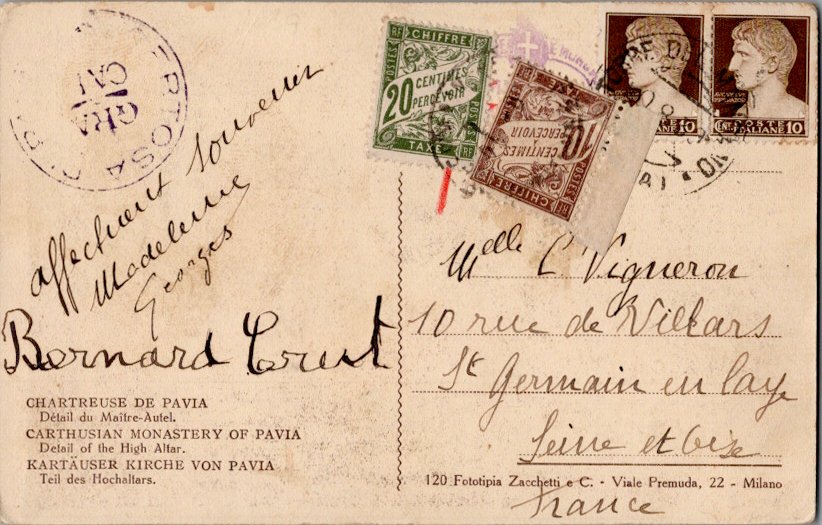 CERTOSA
GRA
CAR
affectueux souvenir
Madeleine
Georges
Bernard Crest
CHARTREUSE DE PAVIA
Détail du Maître-Autel.
CARTHUSIAN MONASTERY OF PAVIA
Detail of the High Altar.
KARTÄUSER KIRCHE VON PAVIA
Teil des Hochaltars.
RF CHIFFRE RF
POSTES
20 CENTIMES
À
PERCEVOIR
TAXE
CHIFFRE
POSTES
10 CENTIMES
À
PERCEVOIR
TAXE
POSTE
ITALIANE
CENT. 10
POSTE
ITALIANE
CENT. 10
Melle C Vigneron
10 rue de Villars
St Germain en Laye
Seine et Oise
France
120 Fototipia Zacchetti e C. - Viale Premuda, 22 - Milano